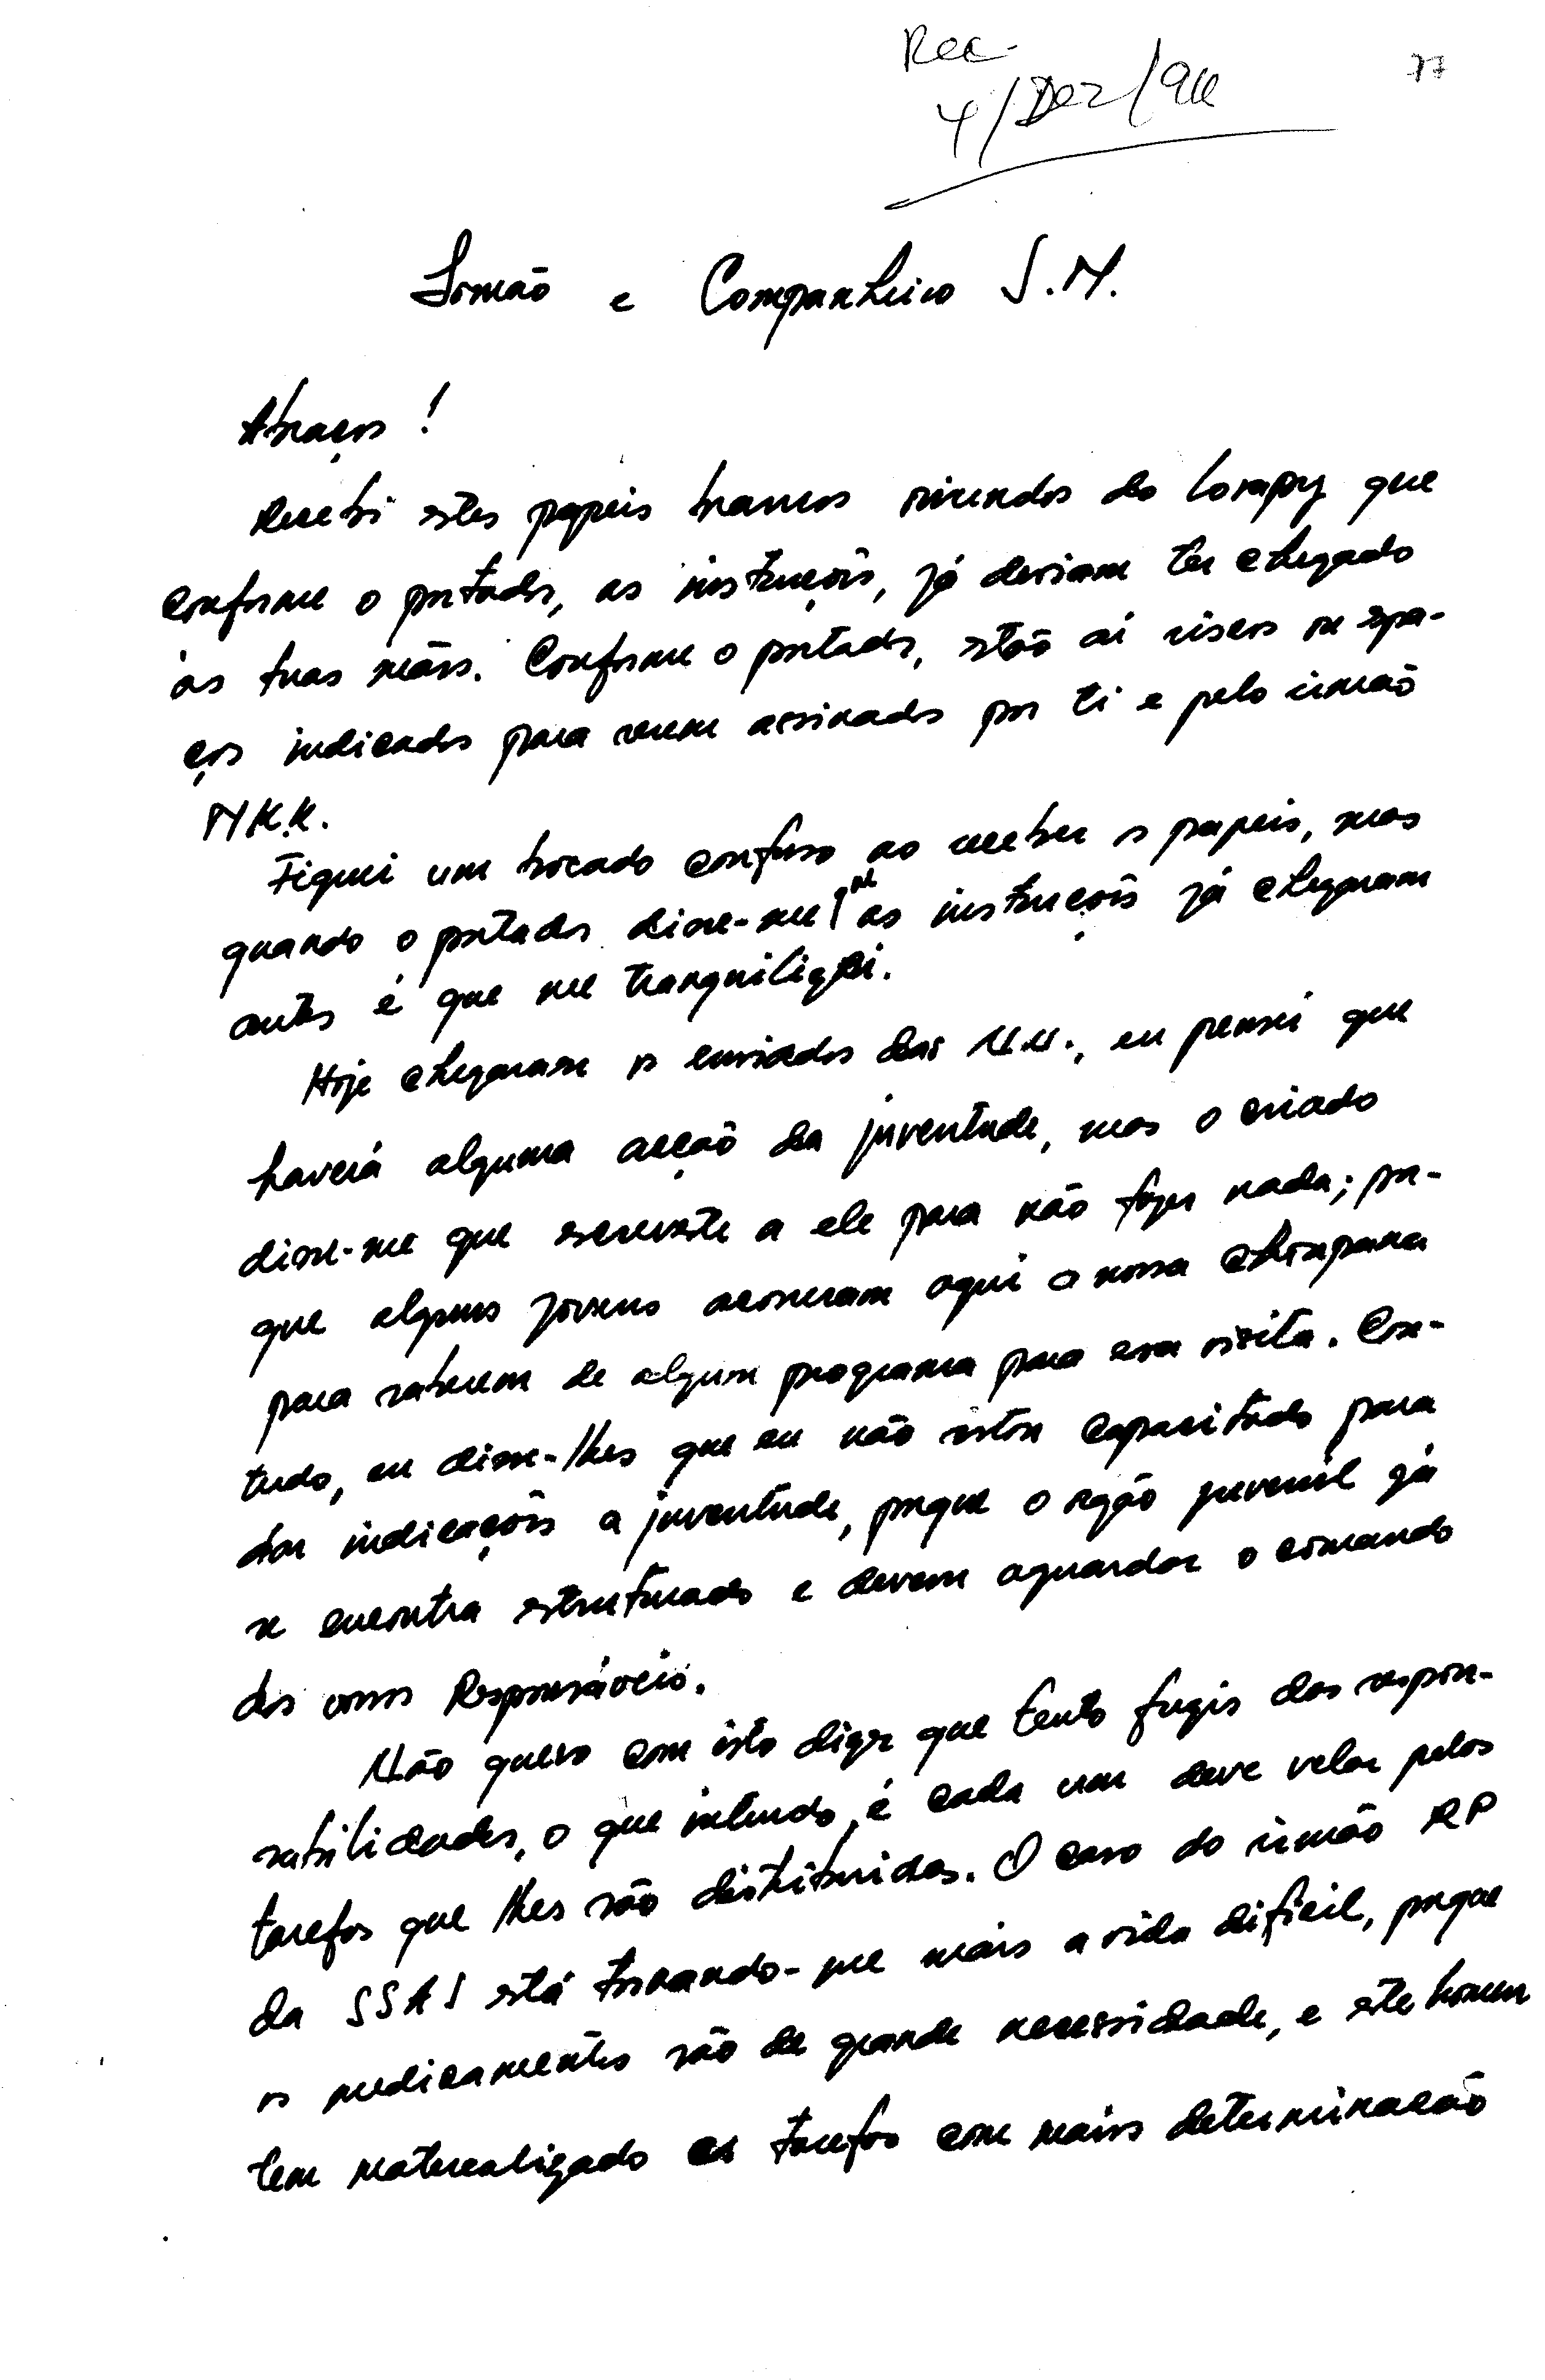 Rec-
77
4/Dez/94
Irmão e Companheiro S.M.
Abraços!
Recebi estes papeis brancos vivendos do Lompy que
conforme o portador, as instruções, já deviam ter chegado
às tuas mãos. Conforme o portador, estão ai riscos ou espa-
ços indicados para serem assinados por ti e pelo irmão
M K.K.
Fiquei um bocado confuso ao receber os papeis, mas
quando o portador disse-me q as instruções já chegaram
antes é que me tranquilizei.
Hoje chegaram os enviados das N.U., eu pensei que
haverá alguma acção da juventude, mas o criado
disse-me que escreveste a ele para não fazer nada; por-
que alguns jovens acorreram aqui a nossa
para saberem de algum programa para essa visita. Con-
tudo, eu disse-lhes que eu não estou capacitado para
dar indicações a juventude, porque o orgão juvenil já
se encontra estruturado e devem aguardar o comando
dos vossos Responsáveis.
Não quero com isto dizer que tento fugir das respon-
sabilidades, o que entendo, é cada um deve velar pelas
tarefas que lhes são distribuidas. O caso do irmão RP
da SSAS está tornando-me mais a vida dificil, porque
os medicamentos são de grande necessidade, e este homem
tem materealizado as tarefas com mais determinação